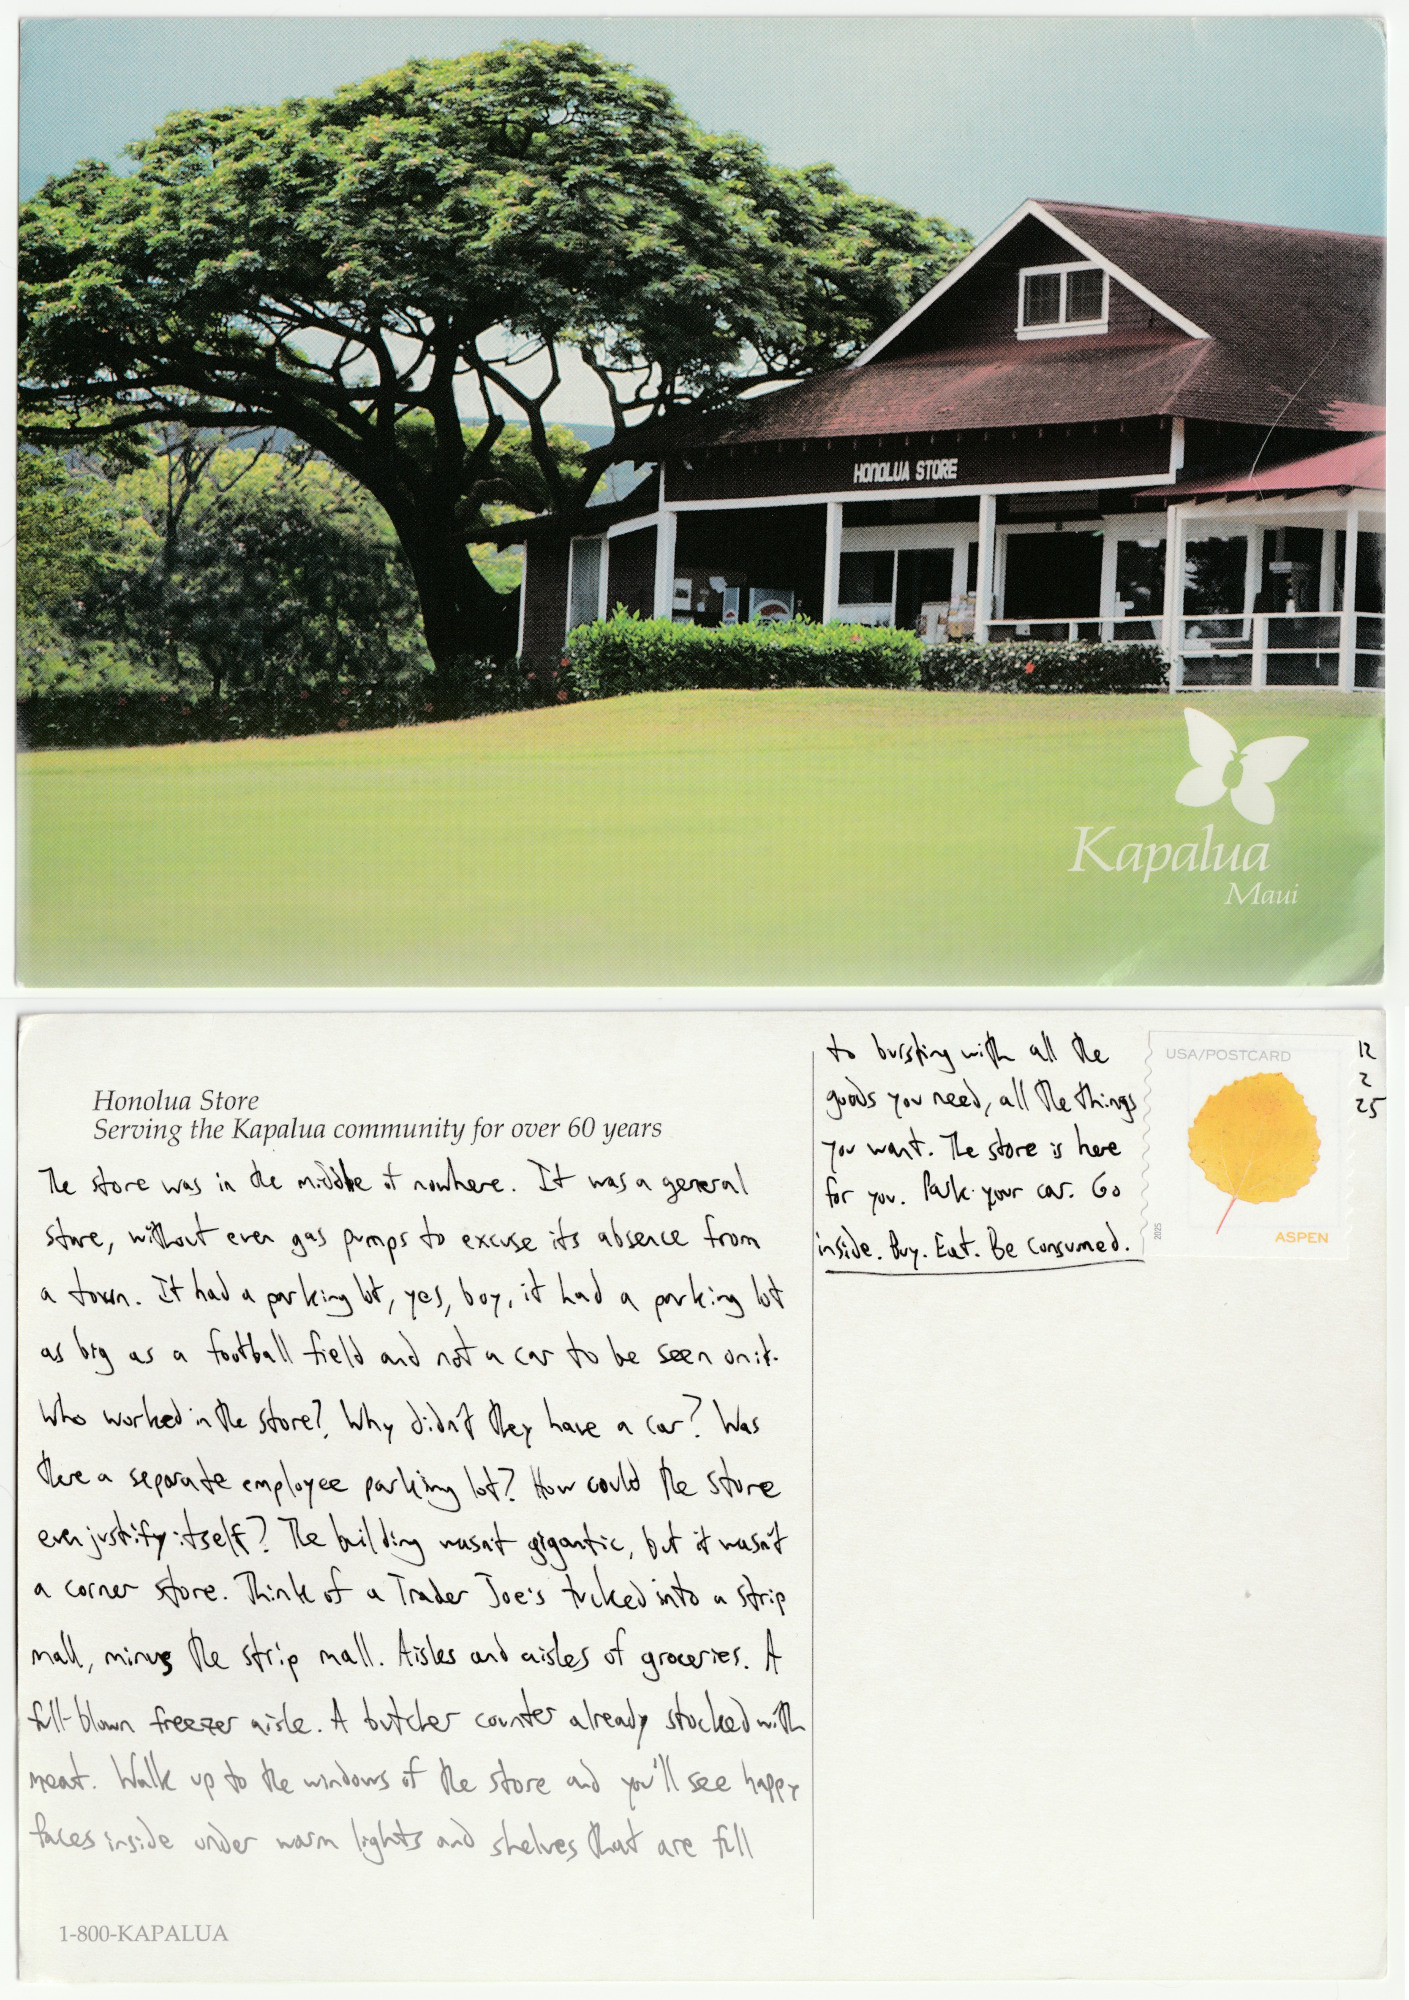 HONOLUA STORE
Kapalua
Maui
Honolua Store
Serving the Kapalua community for over 60 years
The store was in the middle of nowhere. It was a general
store, without even gas pumps to excuse its absence from
a town. It had a parking lot, yes, boy, it had a parking lot
as big as a football field and not a car to be seen on it.
Who worked in the store? Why didn't they have a car? Was
there a separate employee parking lot? How could the store
even justify itself? The building wasn't gigantic, but it wasn't
a corner store. Think of a Trader Joe's tucked into a strip
mall, minus the strip mall. Aisles and aisles of groceries. A
full-blown freezer aisle. A butcher counter already stocked with
meat. Walk up to the windows of the store and you'll see happy
faces inside under warm lights and shelves that are full
1-800-KAPALUA
to bursting with all the
goods you need, all the things
you want. The store is here
for you. Park your car. Go
inside. Buy. Eat. Be consumed.
USA/POSTCARD
2025
ASPEN
12
2
25